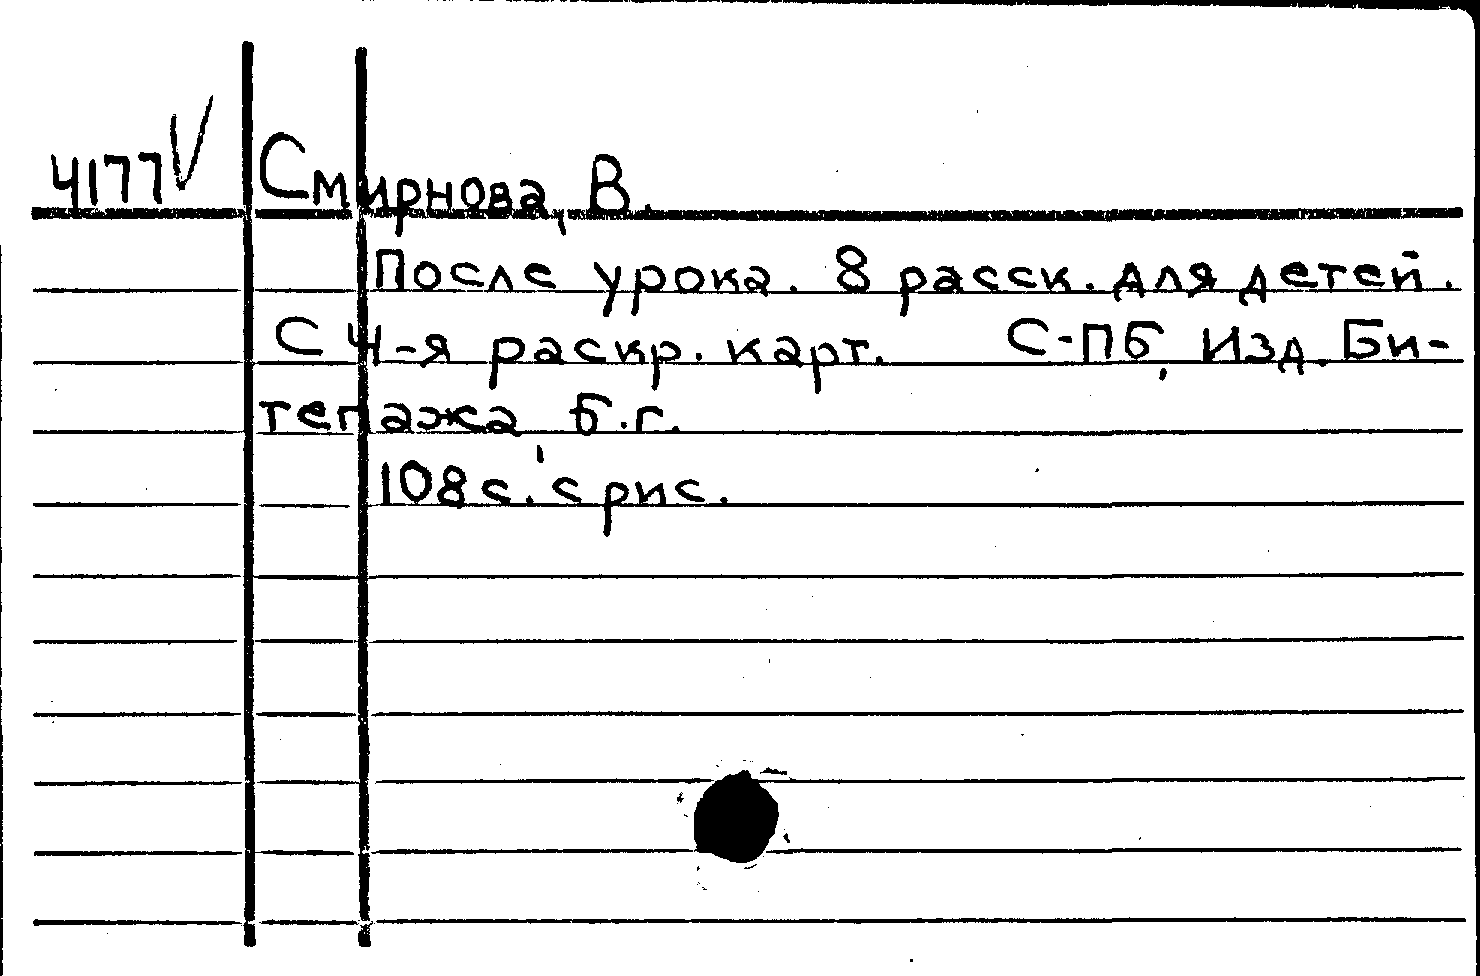 4177 V Смирнова, В.
После урока. 8 расск. для детей.
С 4-я раскр. карт. С-ПБ, Изд. Би-
тепажа, б.г.
108 с. с рис.